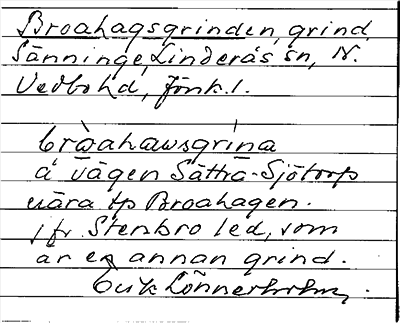 Broahagsgrinden, grind,
Sänninge, Linderås sn, N.
Vedbo hd, Jönk. l.
bròahawsgrina
å vägen Sätra-Sjötorp
nära tp Broahagen.
jfr Stenbro led, som
är en annan grind.
Erik Lönnerholm.